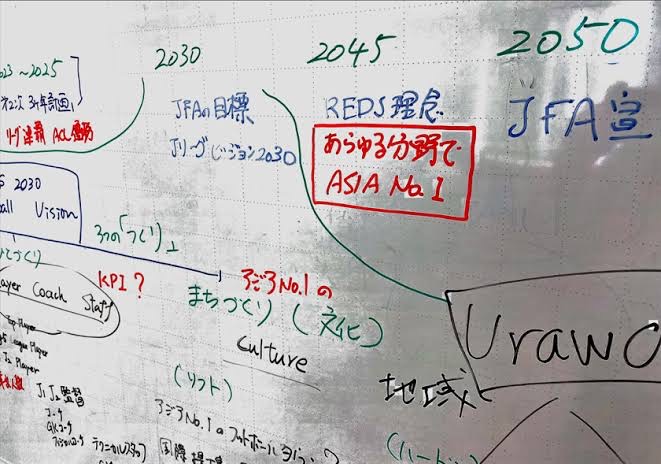 2030
2045
2050
023 ~2025
JFAの目標
REDS理念
JFA宣
Jリーグビジョン2030
リーグ連覇 ACL優勝
あらゆる分野で
ASIA No.1
2030
Vision
3つの「づくり」
KPI?
アジアNo.1の
まちづくり (文化)
culture
ayer Coach Staff
Top Player
J1 J2 監督
コーチ
GKコーチ
フィジカルコーチ
テクニカルスタッフ
(ソフト)
アジアNo.1のフットボール
国際
地域
Urawa
(ハート